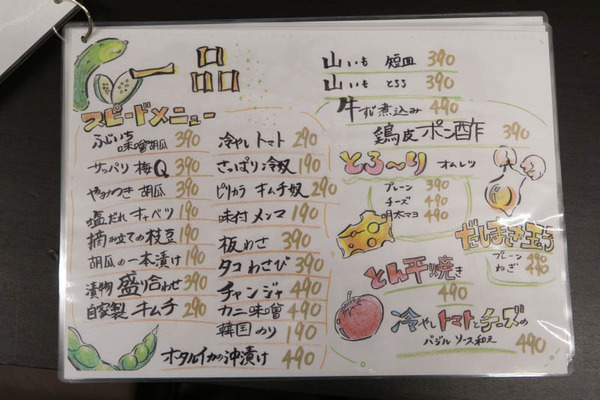 一品
スピードメニュー
ふじいち味噌胡瓜 390
サッパリ梅Q 390
やみつき胡瓜 390
塩だれキャベツ 190
摘み立ての枝豆 190
胡瓜の一本漬け 190
漬物盛り合わせ 390
自家製キムチ 290
冷やしトマト 290
さっぱり冷奴 190
ピリカラキムチ奴 290
味付メンマ 190
板わさ 390
タコわさび 390
チャンジャ 490
カニ味噌 490
韓国のり 190
ホタルイカの沖漬け 490
山いも短冊 390
山いもとろろ 390
牛すじ煮込み 490
鶏皮ポン酢 390
とろ〜りオムレツ
プレーン 390
チーズ 490
明太マヨ 490
だしまき玉子
プレーン 490
ねぎ 490
とん平焼き
490
冷やしトマトとチーズの
バジルソース和え 490